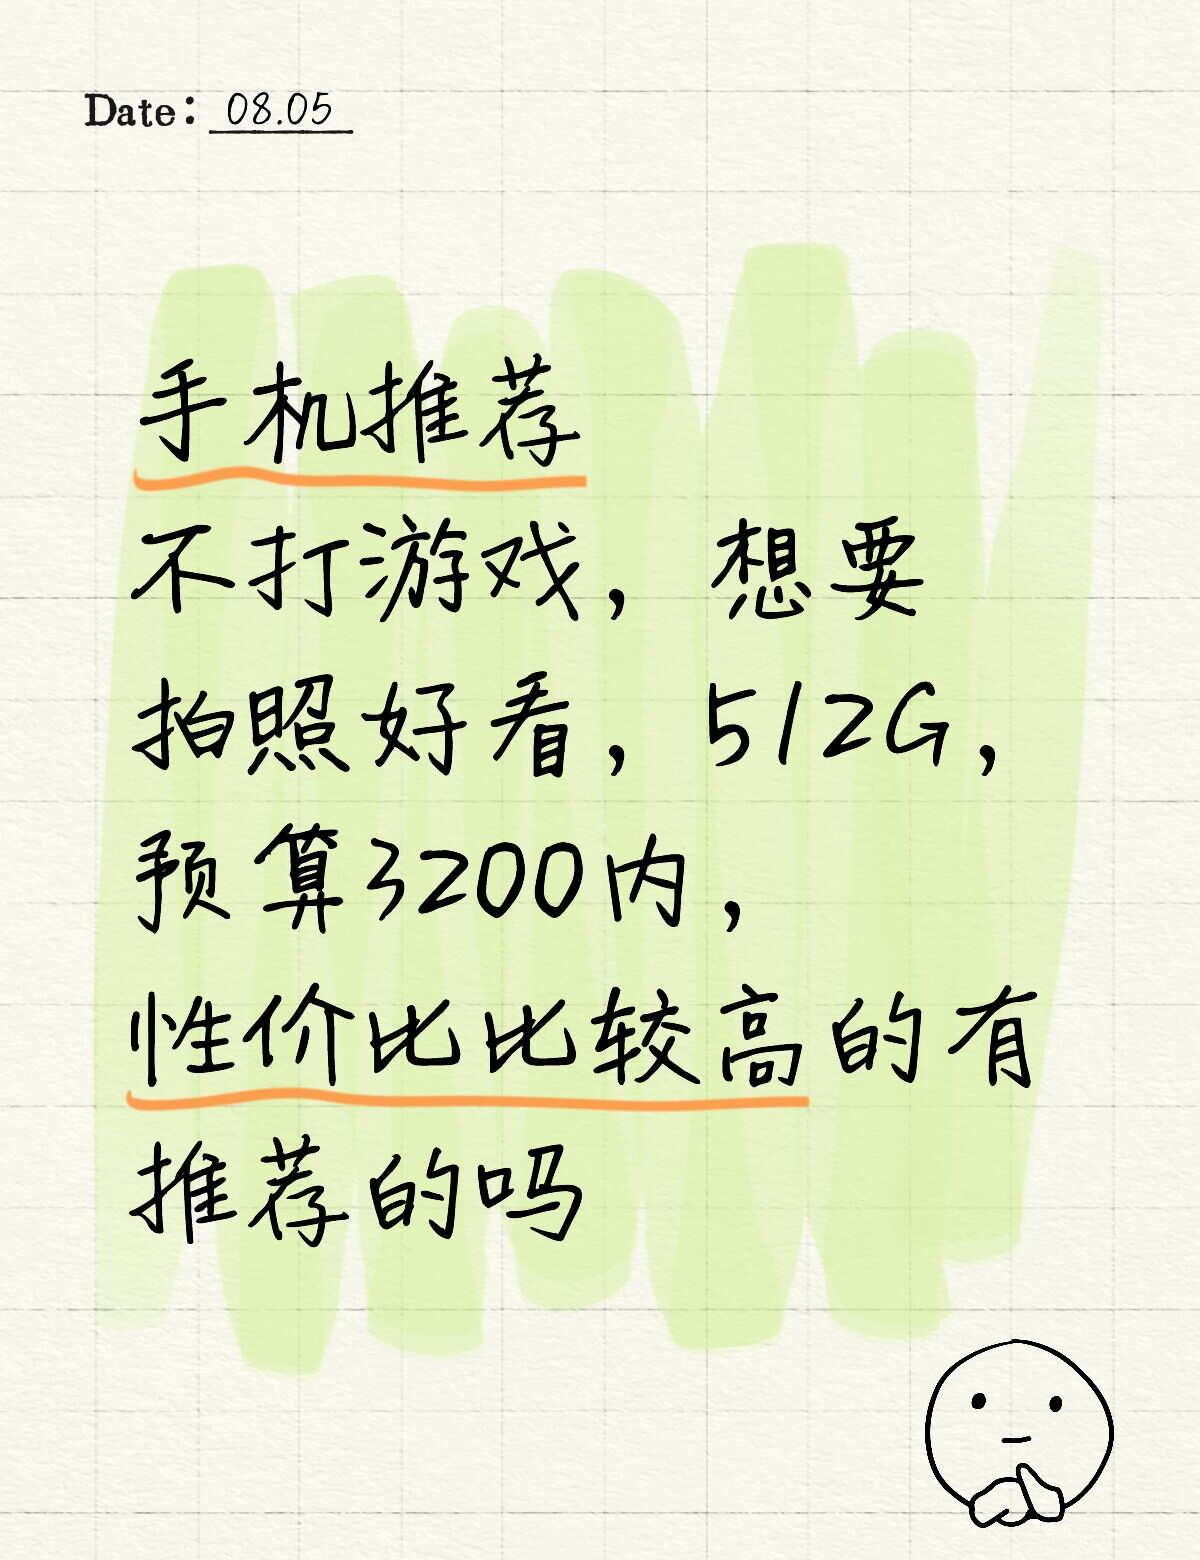 Date: 08.05
手机推荐
不打游戏，想要
拍照好看，512G，
预算3200内，
性价比比较高的有
推荐的吗